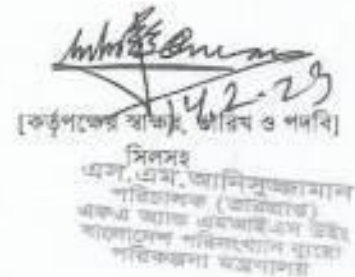 14.2.23
[কর্তৃপক্ষের স্বাক্ষর, তারিখ ও পদবি]
সিলসহ
এস.এম. আনিসুজ্জামান
পরিচালক
এফএ অ্যান্ড এমআইএস উইং
বাংলাদেশ পরিসংখ্যান ব্যুরো
পরিকল্পনা মন্ত্রণালয়